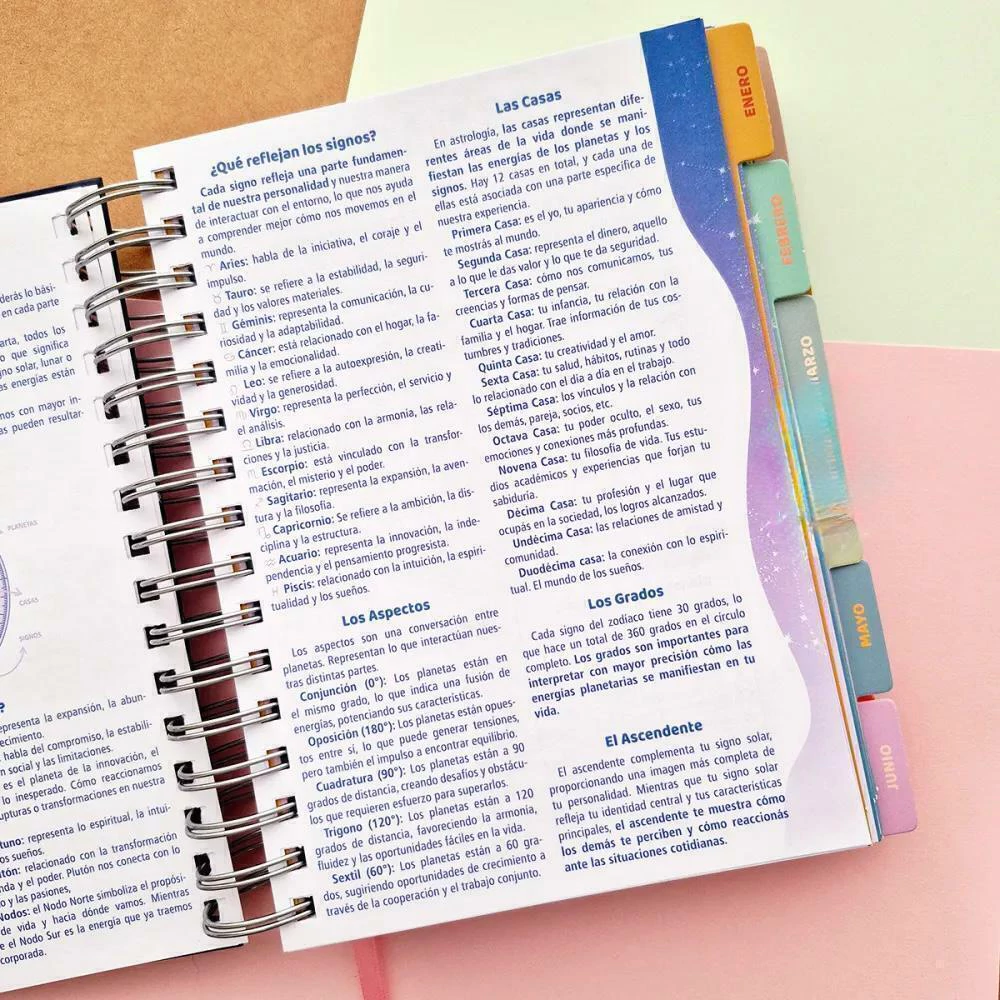 derás lo bási-
en cada parte
arta, todos los
o que significa
gno solar, lunar o
as energías están
nos con mayor in-
as pueden resultar-
PLANETAS
CASAS
SIGNOS
?
epresenta la expansión, la abun-
ecimiento.
habla del compromiso, la estabili-
n social y las limitaciones.
es el planeta de la innovación, el
lo inesperado. Cómo reaccionamos
upturas o transformaciones en nuestra
tuno: representa lo espiritual, la intui-
os sueños.
tón: relacionado con la transformación
nda y el poder. Plutón nos conecta con lo
o y las pasiones,
Nodos: el Nodo Norte simboliza el propósi-
de vida y hacia dónde vamos. Mientras
e el Nodo Sur es la energía que ya traemos
corporada.
¿Qué reflejan los signos?
Cada signo refleja una parte fundamen-
tal de nuestra personalidad y nuestra manera
de interactuar con el entorno, lo que nos ayuda
a comprender mejor cómo nos movemos en el
mundo.
♈ Aries: habla de la iniciativa, el coraje y el
impulso.
♉ Tauro: se refiere a la estabilidad, la seguri-
dad y los valores materiales.
♊ Géminis: representa la comunicación, la cu-
riosidad y la adaptabilidad.
♋ Cáncer: está relacionado con el hogar, la fa-
milia y la emocionalidad.
♌ Leo: se refiere a la autoexpresión, la creati-
vidad y la generosidad.
♍ Virgo: representa la perfección, el servicio y
el análisis.
♎ Libra: relacionado con la armonía, las rela-
ciones y la justicia.
♏ Escorpio: está vinculado con la transfor-
mación, el misterio y el poder.
♐ Sagitario: representa la expansión, la aven-
tura y la filosofía.
♑ Capricornio: Se refiere a la ambición, la dis-
ciplina y la estructura.
♒ Acuario: representa la innovación, la inde-
pendencia y el pensamiento progresista.
♓ Piscis: relacionado con la intuición, la espiri-
tualidad y los sueños.
Los Aspectos
Los aspectos son una conversación entre
planetas. Representan lo que interactúan nues-
tras distintas partes.
Conjunción (0°): Los planetas están en
el mismo grado, lo que indica una fusión de
energías, potenciando sus características.
Oposición (180°): Los planetas están opues-
tos entre sí, lo que puede generar tensiones,
pero también el impulso a encontrar equilibrio.
Cuadratura (90°): Los planetas están a 90
grados de distancia, creando desafíos y obstácu-
los que requieren esfuerzo para superarlos.
Trigono (120°): Los planetas están a 120
grados de distancia, favoreciendo la armonía,
fluidez y las oportunidades fáciles en la vida.
Sextil (60°): Los planetas están a 60 gra-
dos, sugiriendo oportunidades de crecimiento a
través de la cooperación y el trabajo conjunto.
Las Casas
En astrología, las casas representan dife-
rentes áreas de la vida donde se mani-
fiestan las energías de los planetas y los
signos. Hay 12 casas en total, y cada una de
ellas está asociada con una parte específica de
nuestra experiencia.
Primera Casa: es el yo, tu apariencia y cómo
te mostrás al mundo.
Segunda Casa: representa el dinero, aquello
a lo que le das valor y lo que te da seguridad.
Tercera Casa: cómo nos comunicamos, tus
creencias y formas de pensar.
Cuarta Casa: tu infancia, tu relación con la
familia y el hogar. Trae información de tus cos-
tumbres y tradiciones.
Quinta Casa: tu creatividad y el amor.
Sexta Casa: tu salud, hábitos, rutinas y todo
lo relacionado con el día a día en el trabajo.
Séptima Casa: los vínculos y la relación con
los demás, pareja, socios, etc.
Octava Casa: tu poder oculto, el sexo, tus
emociones y conexiones más profundas.
Novena Casa: tu filosofía de vida. Tus estu-
dios académicos y experiencias que forjan tu
sabiduría.
Dècima Casa: tu profesión y el lugar que
ocupás en la sociedad, los logros alcanzados.
Undècima Casa: las relaciones de amistad y
comunidad.
Duodécima casa: la conexión con lo espiri-
tual. El mundo de los sueños.
Los Grados
Cada signo del zodíaco tiene 30 grados, lo
que hace un total de 360 grados en el círculo
completo. Los grados son importantes para
interpretar con mayor precisión cómo las
energías planetarias se manifiestan en tu
vida.
El Ascendente
El ascendente complementa tu signo solar,
proporcionando una imagen más completa de
tu personalidad. Mientras que tu signo solar
refleja tu identidad central y tus características
principales, el ascendente te muestra cómo
los demás te perciben y cómo reaccionás
ante las situaciones cotidianas.
ENERO
FEBRERO
MARZO
MAYO
JUNIO